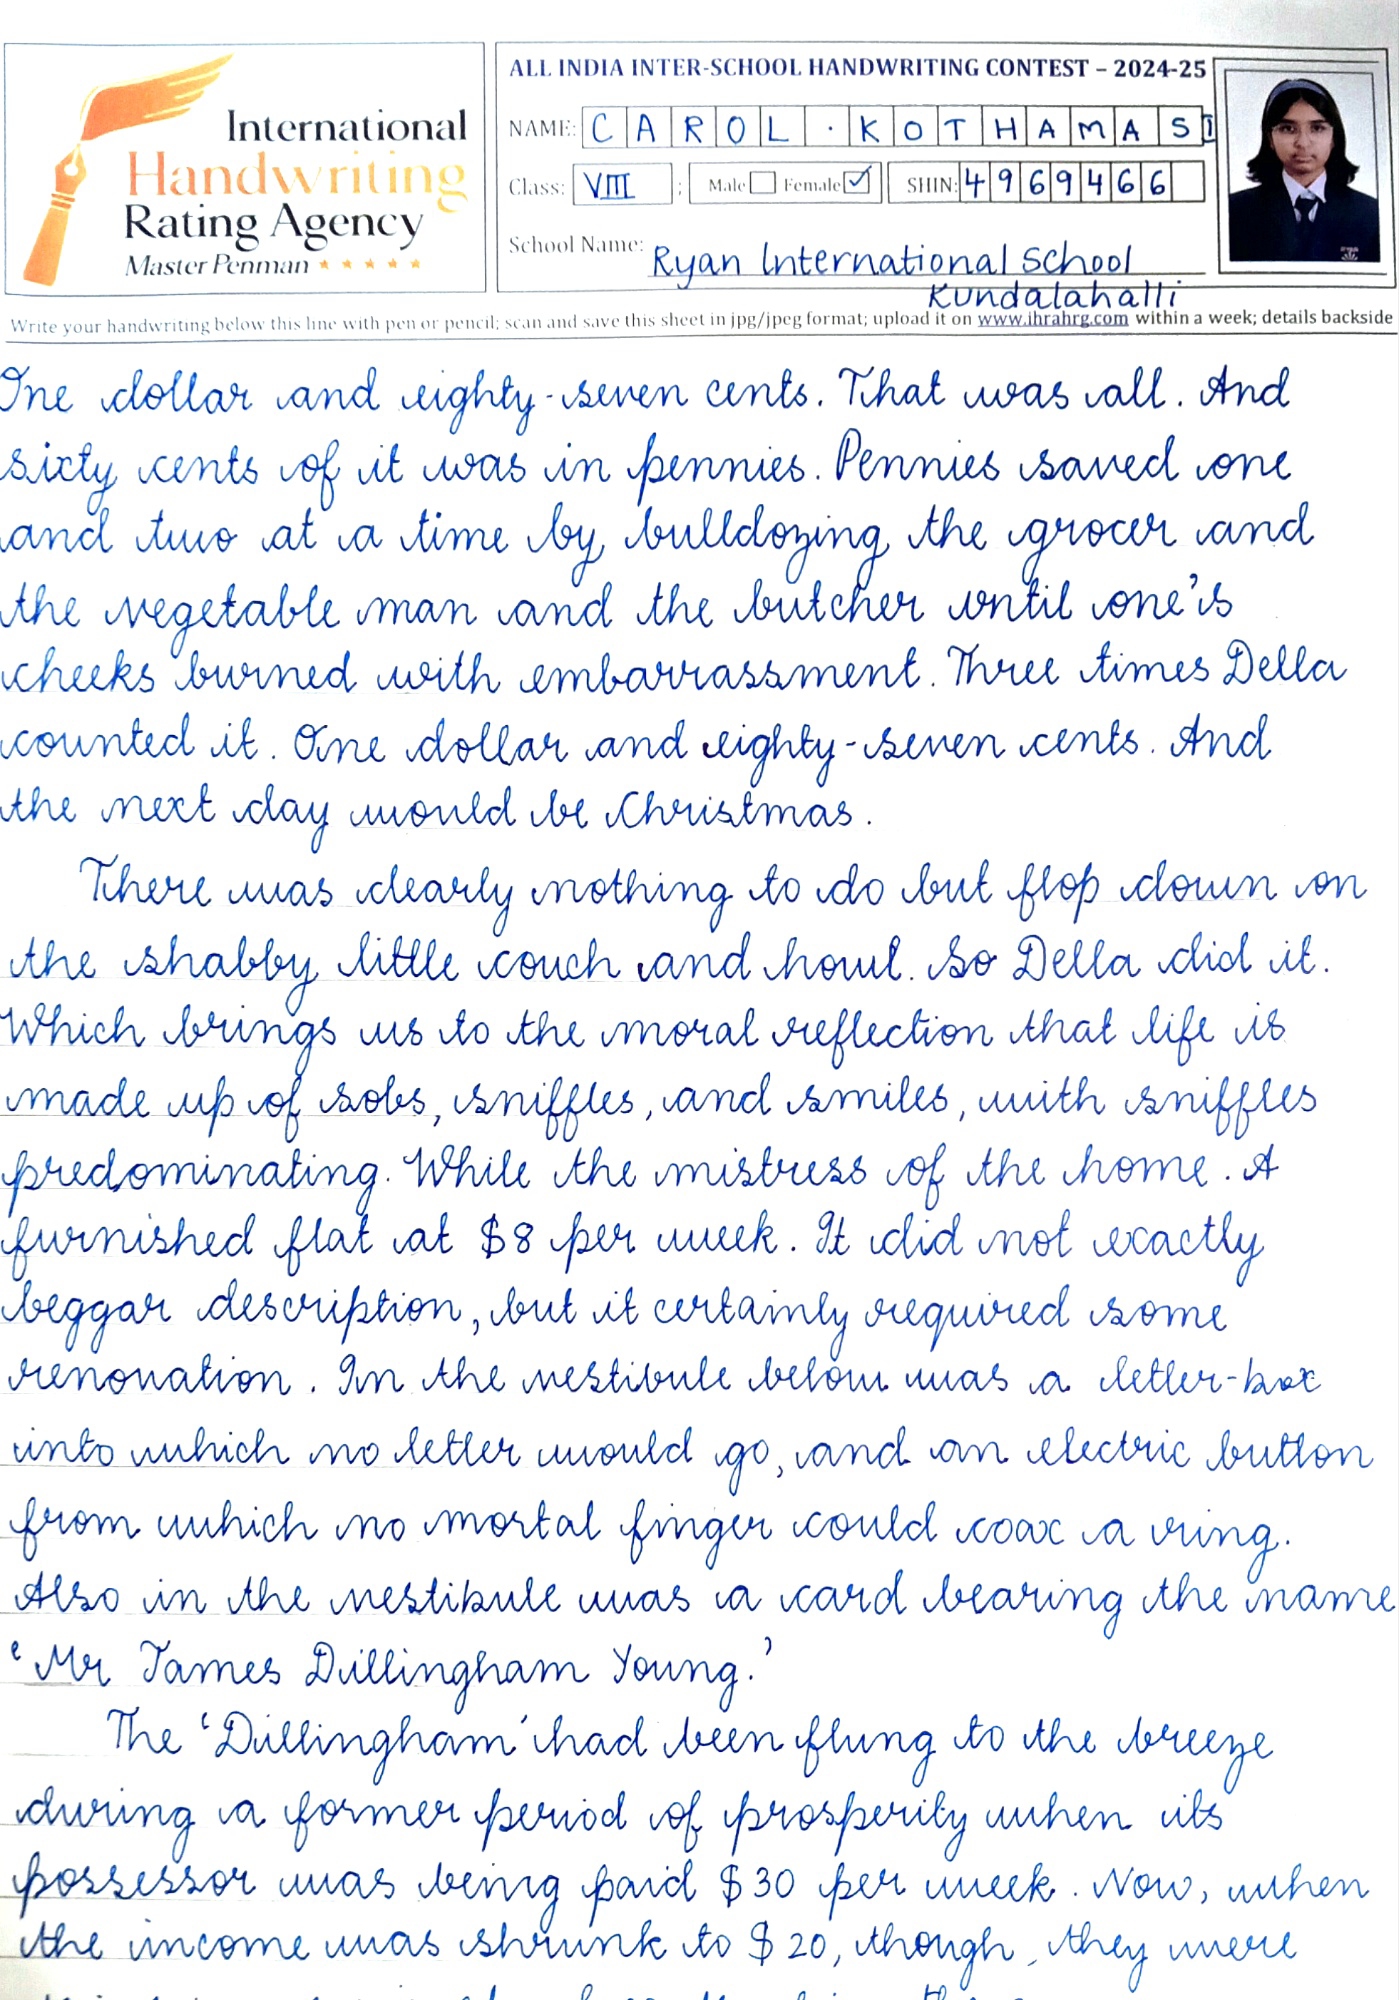 International
Handwriting
Rating Agency
Master Penman
ALL INDIA INTER-SCHOOL HANDWRITING CONTEST – 2024-25
NAME: CAROL . KOTHAMASI
Class: VIII ; Male Female ✓ SHIN: 4969466
School Name: Ryan International School
Kundalahalli
Write your handwriting below this line with pen or pencil; scan and save this sheet in jpg/jpeg format; upload it on www.ihrahrg.com within a week; details backside
One dollar and eighty-seven cents. That was all. And
sixty cents of it was in pennies. Pennies saved one
and two at a time by bulldozing the grocer and
the vegetable man and the butcher until one's
cheeks burned with embarrassment. Three times Della
counted it. One dollar and eighty-seven cents. And
the next day would be Christmas.
There was clearly nothing to do but flop down on
the shabby little couch and howl. So Della did it.
Which brings us to the moral reflection that life is
made up of sobs, sniffles, and smiles, with sniffles
predominating. While the mistress of the home. A
furnished flat at $8 per week. It did not exactly
beggar description, but it certainly required some
renovation. In the vestibule below was a letter-box
into which no letter would go, and an electric button
from which no mortal finger could coax a ring.
Also in the vestibule was a card bearing the name
'Mr James Dillingham Young.'
The 'Dillingham' had been flung to the breeze
during a former period of prosperity when its
possessor was being paid $30 per week. Now, when
the income was shrunk to $20, though, they were